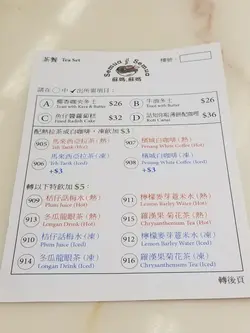 茶餐 Tea Set
Semua Semua
蘇媽.蘇媽
請在○中✓出所要項目:
A 椰香咖央多士 $26
Toast with Kaya & Butter
B 牛油多士 $26
Toast with Butter
C 魚仔蘿蔔糕 $32
Fried Radish Cake
D $36
Roti Canai
配熱拉茶或白咖啡,凍飲加$3
905 馬來西亞拉茶 (熱)
Teh Tarik (Hot)
906 馬來西亞拉茶 (凍)
Teh Tarik (Iced)
+$3
907 檳城白咖啡 (熱)
Penang White Coffee (Hot)
908 檳城白咖啡 (凍)
Penang White Coffee (Iced)
+$3
轉以下特飲加 $5:
909 桔仔話梅水 (熱)
Plum Juice (Hot)
913 冬瓜龍眼茶 (熱)
Longan Drink (Hot)
910 桔仔話梅水 (凍)
Plum Juice (Iced)
914 冬瓜龍眼茶 (凍)
Longan Drink (Iced)
911 檸檬麥芽薏米水 (熱)
Lemon Barley Water (Hot)
915 羅漢果菊花茶 (熱)
Chrysanthemum Tea (Hot)
912 檸檬麥芽薏米水 (凍)
Lemon Barley Water (Iced)
916 羅漢果菊花茶 (凍)
Chrysanthemum Tea (Iced)
轉後頁